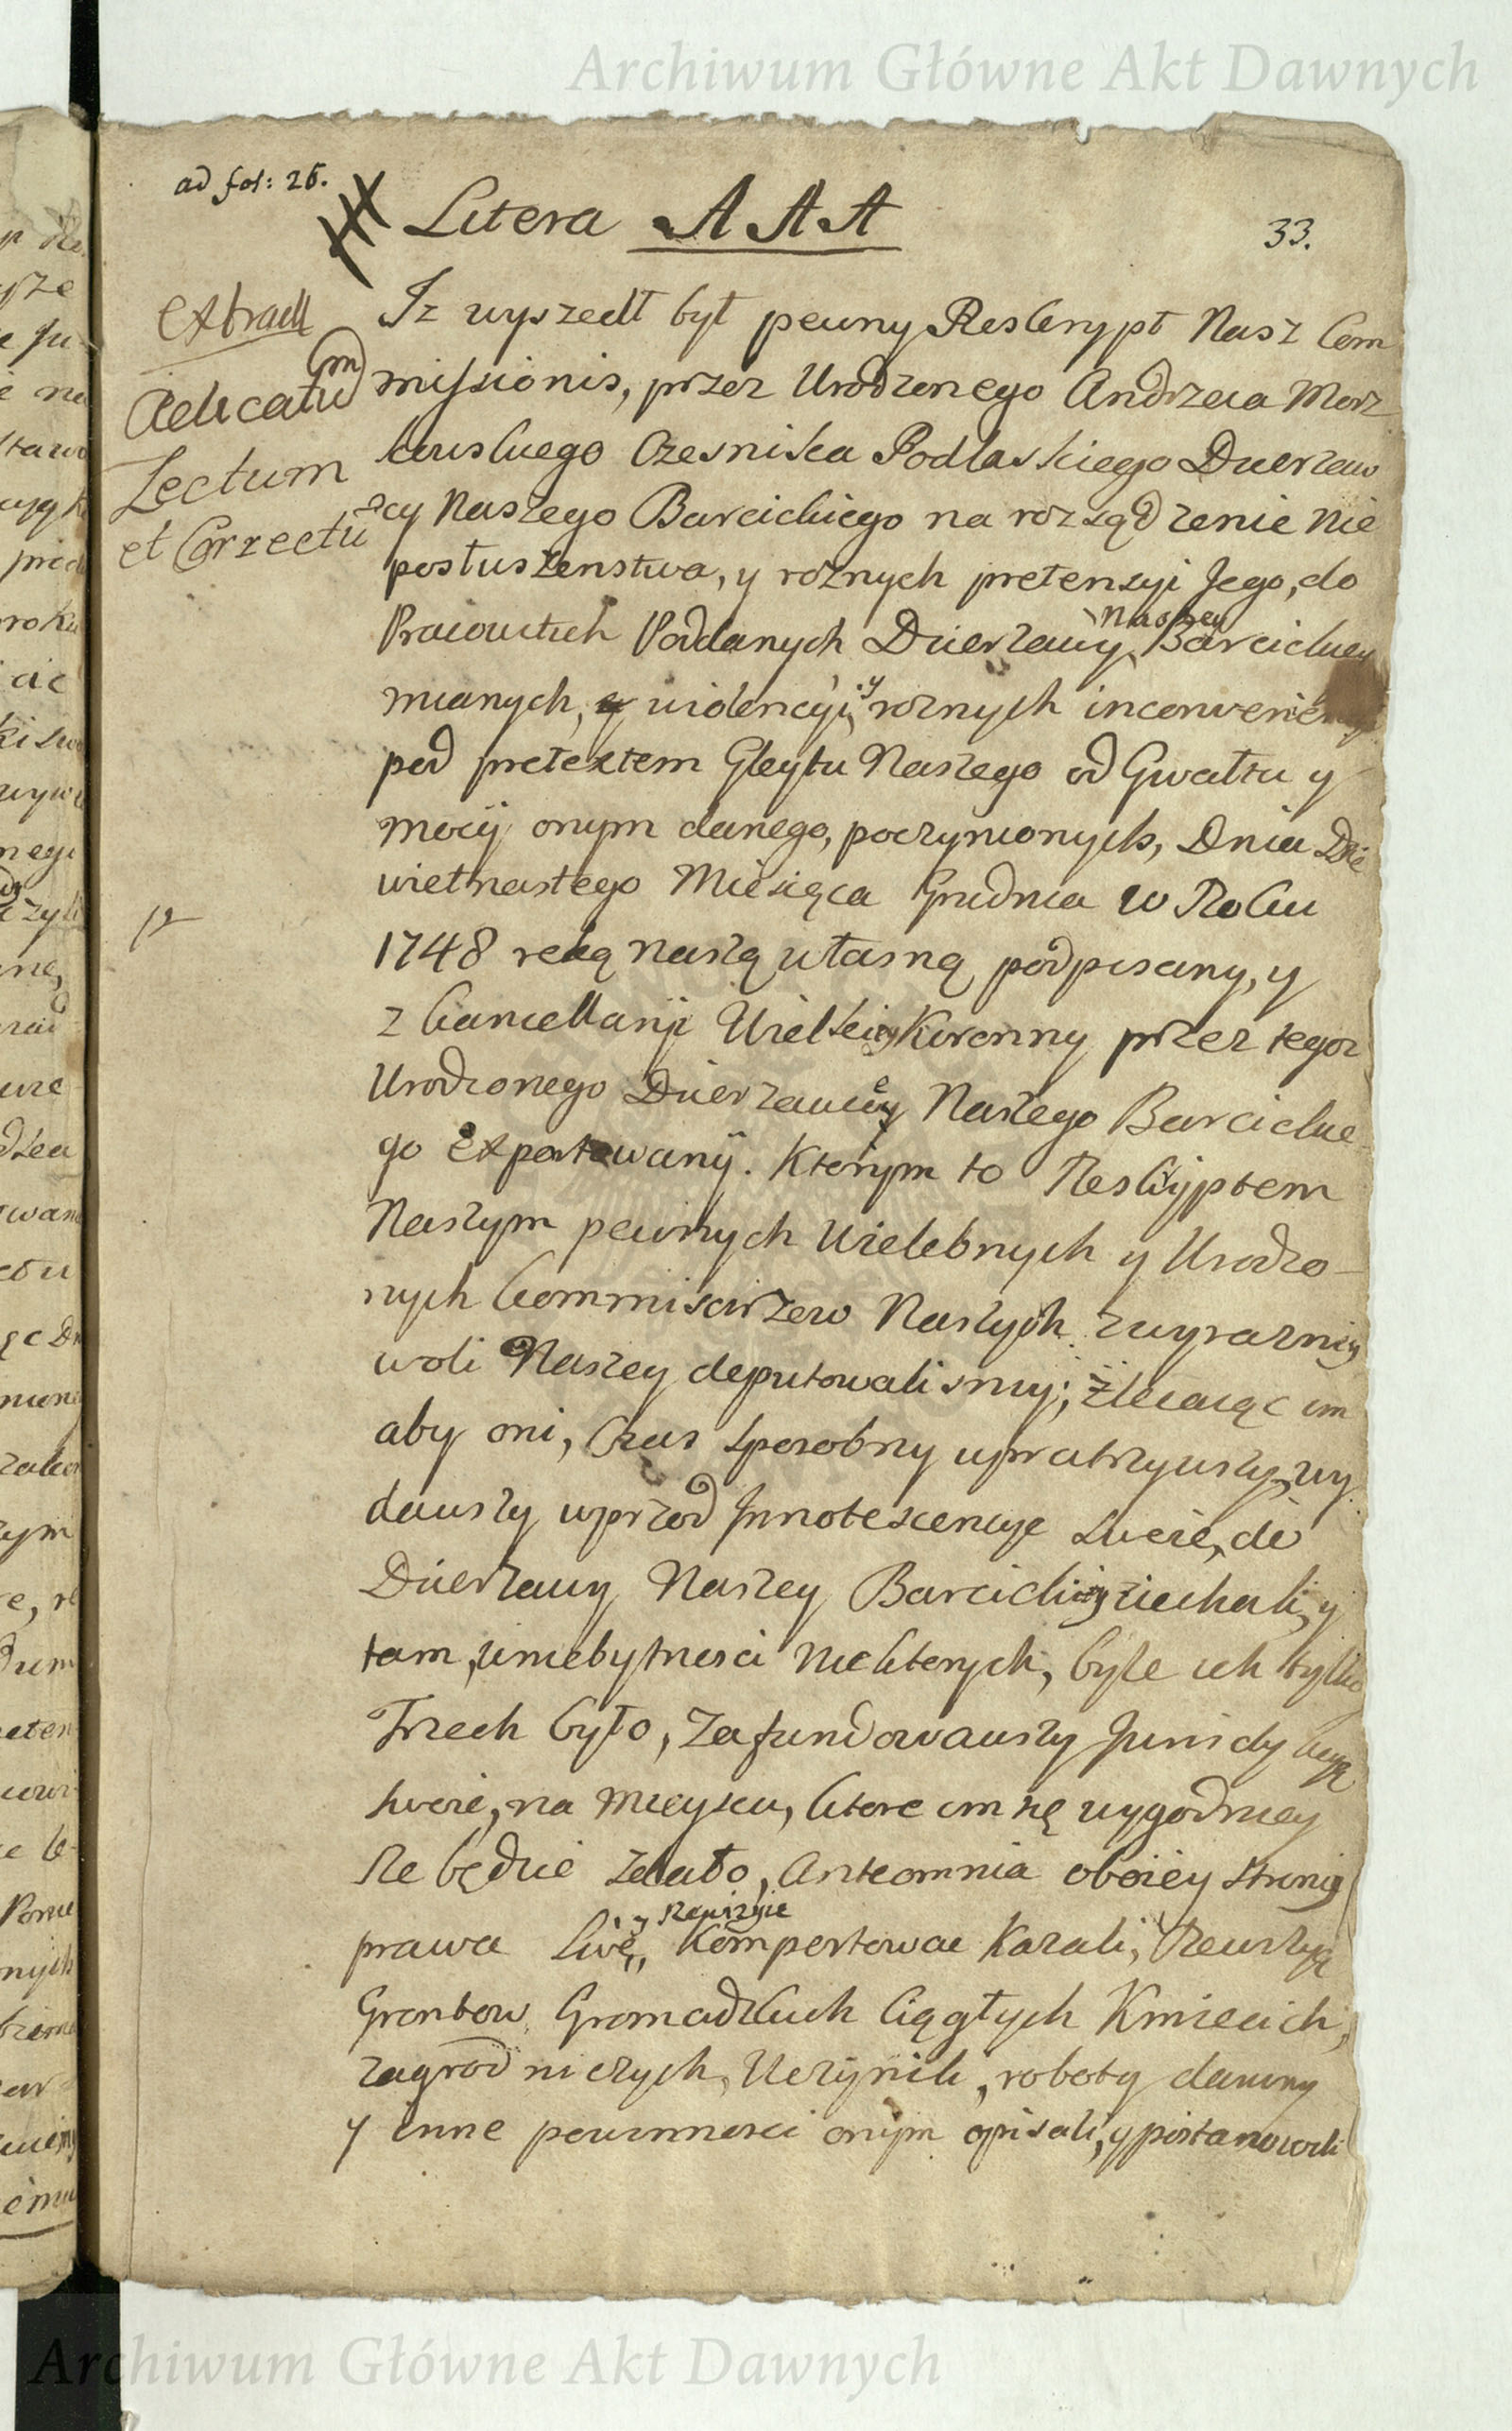 Archiwum Główne Akt Dawnych
ad fol: 26.
Litera A A A
33.
extrad
Aedicatum
Lectum
et Correctū
Iz wyszedł był pewny Reskrypt Nasz Com
missionis, przez Urodzonego Andrzeia Morz
kowskiego Czesnika Podlaskiego Dzierzaw
cy Naszego Barcickiego na rozsądzenie Nie
posłuszenstwa, y roznych pretensyi Jego, do
Pracowitych Poddanych Dzierzawy Naszey Barcickiey
mianych, violencyi, y roznych inconvenien
pod pretextem Gleytu Naszego od Gwałtu y
mocy onym danego, poczynionych, Dnia Dzie
wietnastego Miesiąca Grudnia w Roku
1748 ręką naszą własną podpisany, y
z Cancellaryi Wielkiey Koronny przez tegoz
Urodzonego Dzierzawcę Naszego Barcickie
go Exportowany. Ktorym to Reskryptem
Naszym pewnych Wielebnych y Urodzo-
nych Commissarzow Naszych zwyrazney
woli Naszey deputowalismy; zlecaiąc im
aby oni, Czas sposobny upatrzywszy, wy
dawszy wprzod Innotescencye swoie, do
Dzierzawy Naszey Barcickiey ziechali, y
tam, wniebytnosci Niektorych, byle ich tylko
Trzech było, Zafundowawszy Jurisdykcyą
swoię, na mieyscu, ktore im się wygodniey
sze będzie zdało, Anteomnia oboiey strony
prawa Live, y Rewizyie Komportowac Kazali, Rewizyą
Grontow Gromadzkich Ciągłych Kmiecich,
zagrodniczych, Uczynili, roboty daniny
y inne powinnosci onym opisali, y postanowili
Archiwum Główne Akt Dawnych